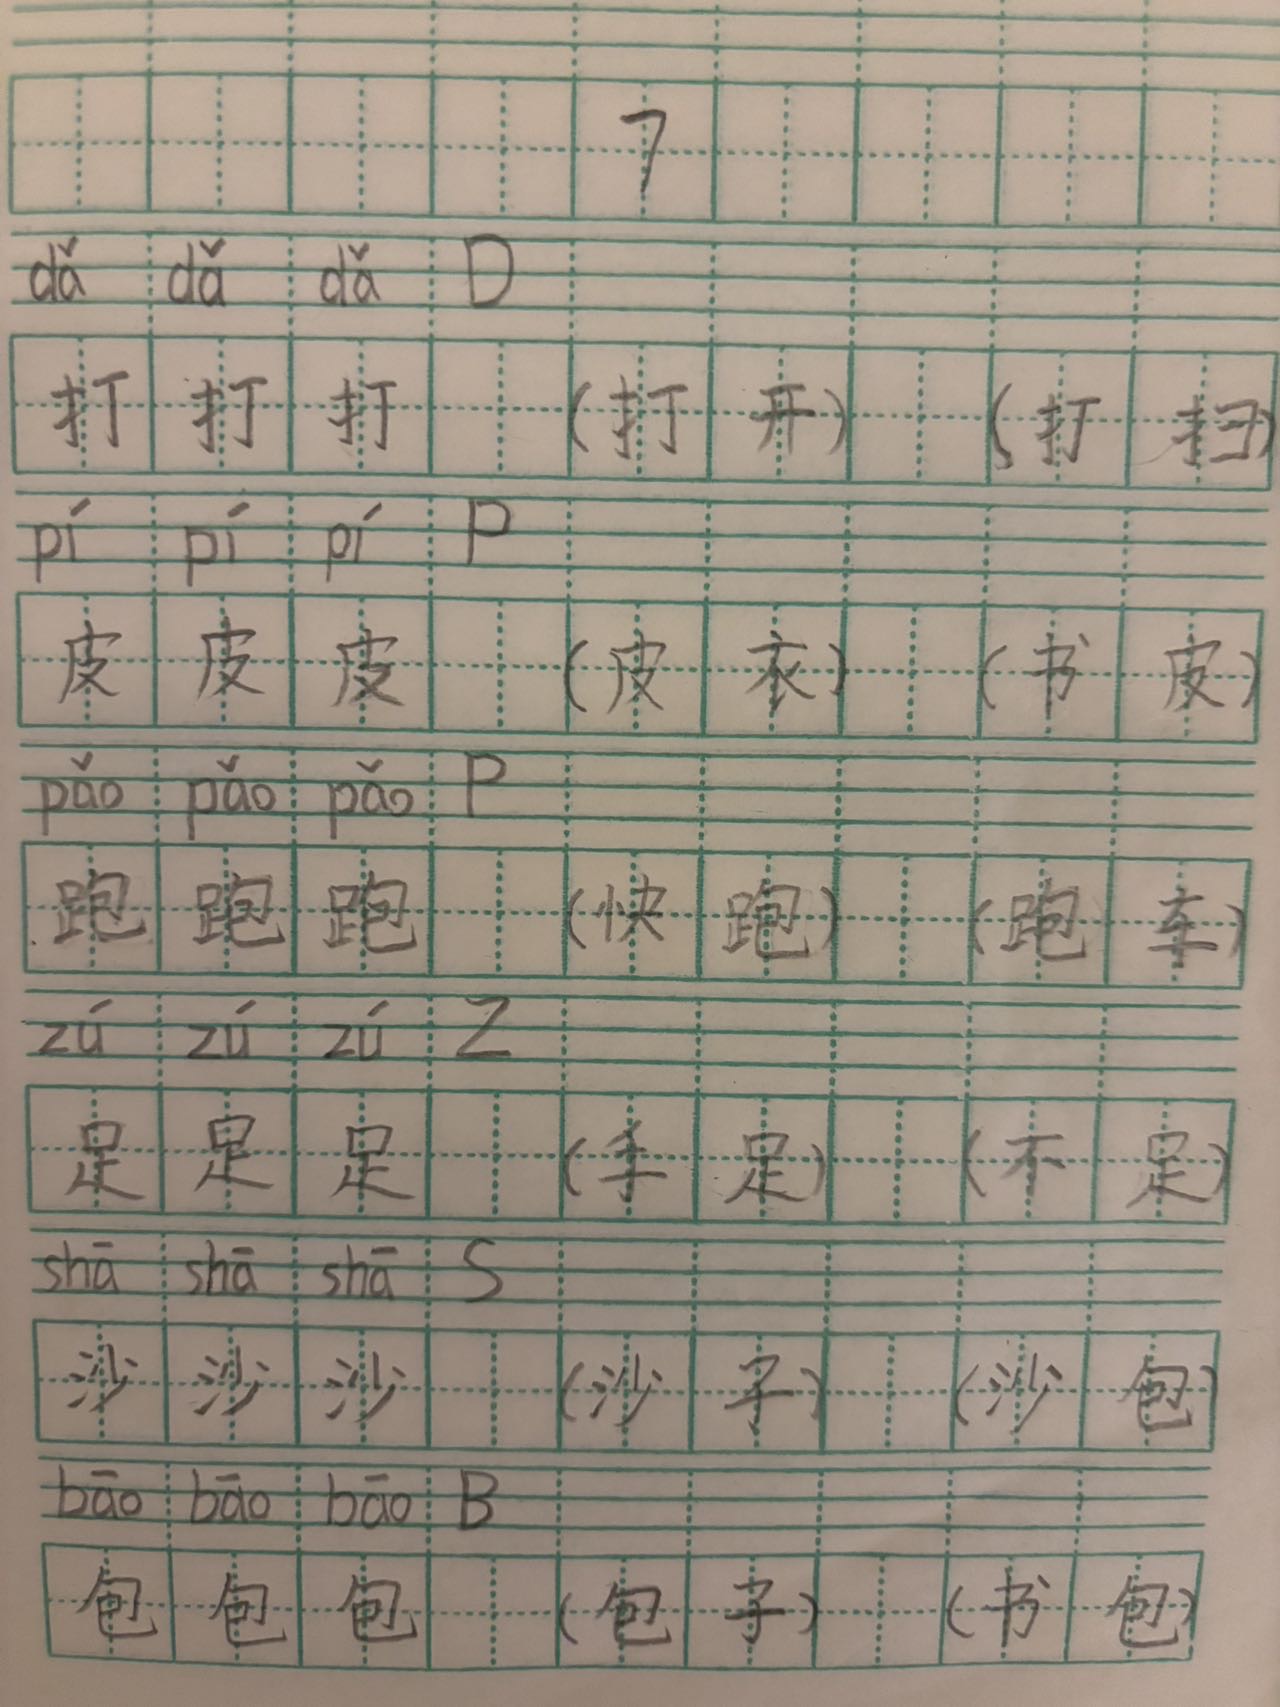 7
dǎ dǎ dǎ D
打 打 打 (打 开) (打 扫)
pí pí pí P
皮 皮 皮 (皮 衣) (书 皮)
pǎo pǎo pǎo P
跑 跑 跑 (快 跑) (跑 车)
zú zú zú Z
足 足 足 (手 足) (不 足)
shā shā shā S
沙 沙 沙 (沙 子) (沙 包)
bāo bāo bāo B
包 包 包 (包 子) (书 包)